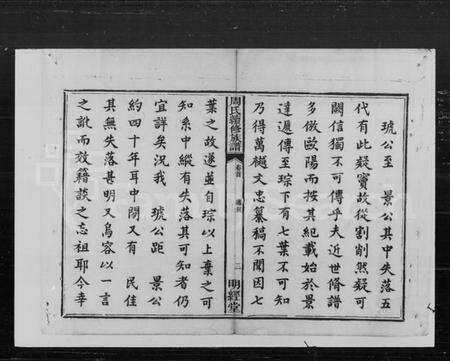 琥公至　景公其中失落五
代有此疑竇故從割削然疑可
闕信獨不可傳乎夫近世脩譜
多倣歐陽而按其紀載始於景
達遞傳至琮下有七葉不可知
乃得萬樾文忠纂稿不聞因七
周氏續修族譜
卷首
三
明經堂
葉之故遂並自琮以上棄之可
知系中縱有失落其可知者仍
宜詳矣況我　琥公距　景公
約四十年耳中間又有　民佳
其無失落甚明又烏容以一言
之訛而效籍談之忘祖耶今幸